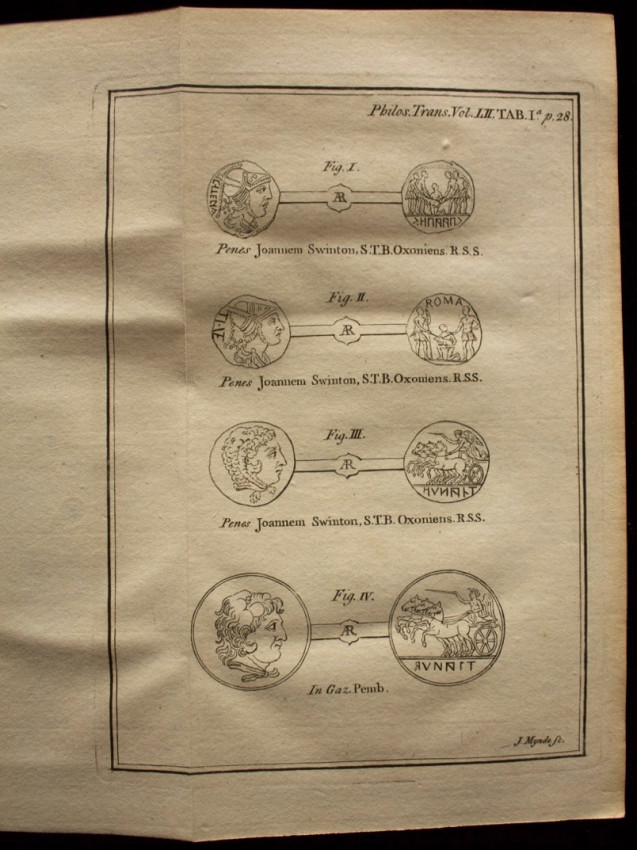 Philos. Trans. Vol. LII. TAB. I.ª p. 28.
Fig. I.
Penes Joannem Swinton, S.T.B. Oxoniens. R.S.S.
Fig. II.
ROMA
TI·VE
Penes Joannem Swinton, S.T.B. Oxoniens. R.S.S.
Fig. III.
Penes Joannem Swinton, S.T.B. Oxoniens. R.S.S.
Fig. IV.
In Gaz. Pemb.
J. Mynde sc.